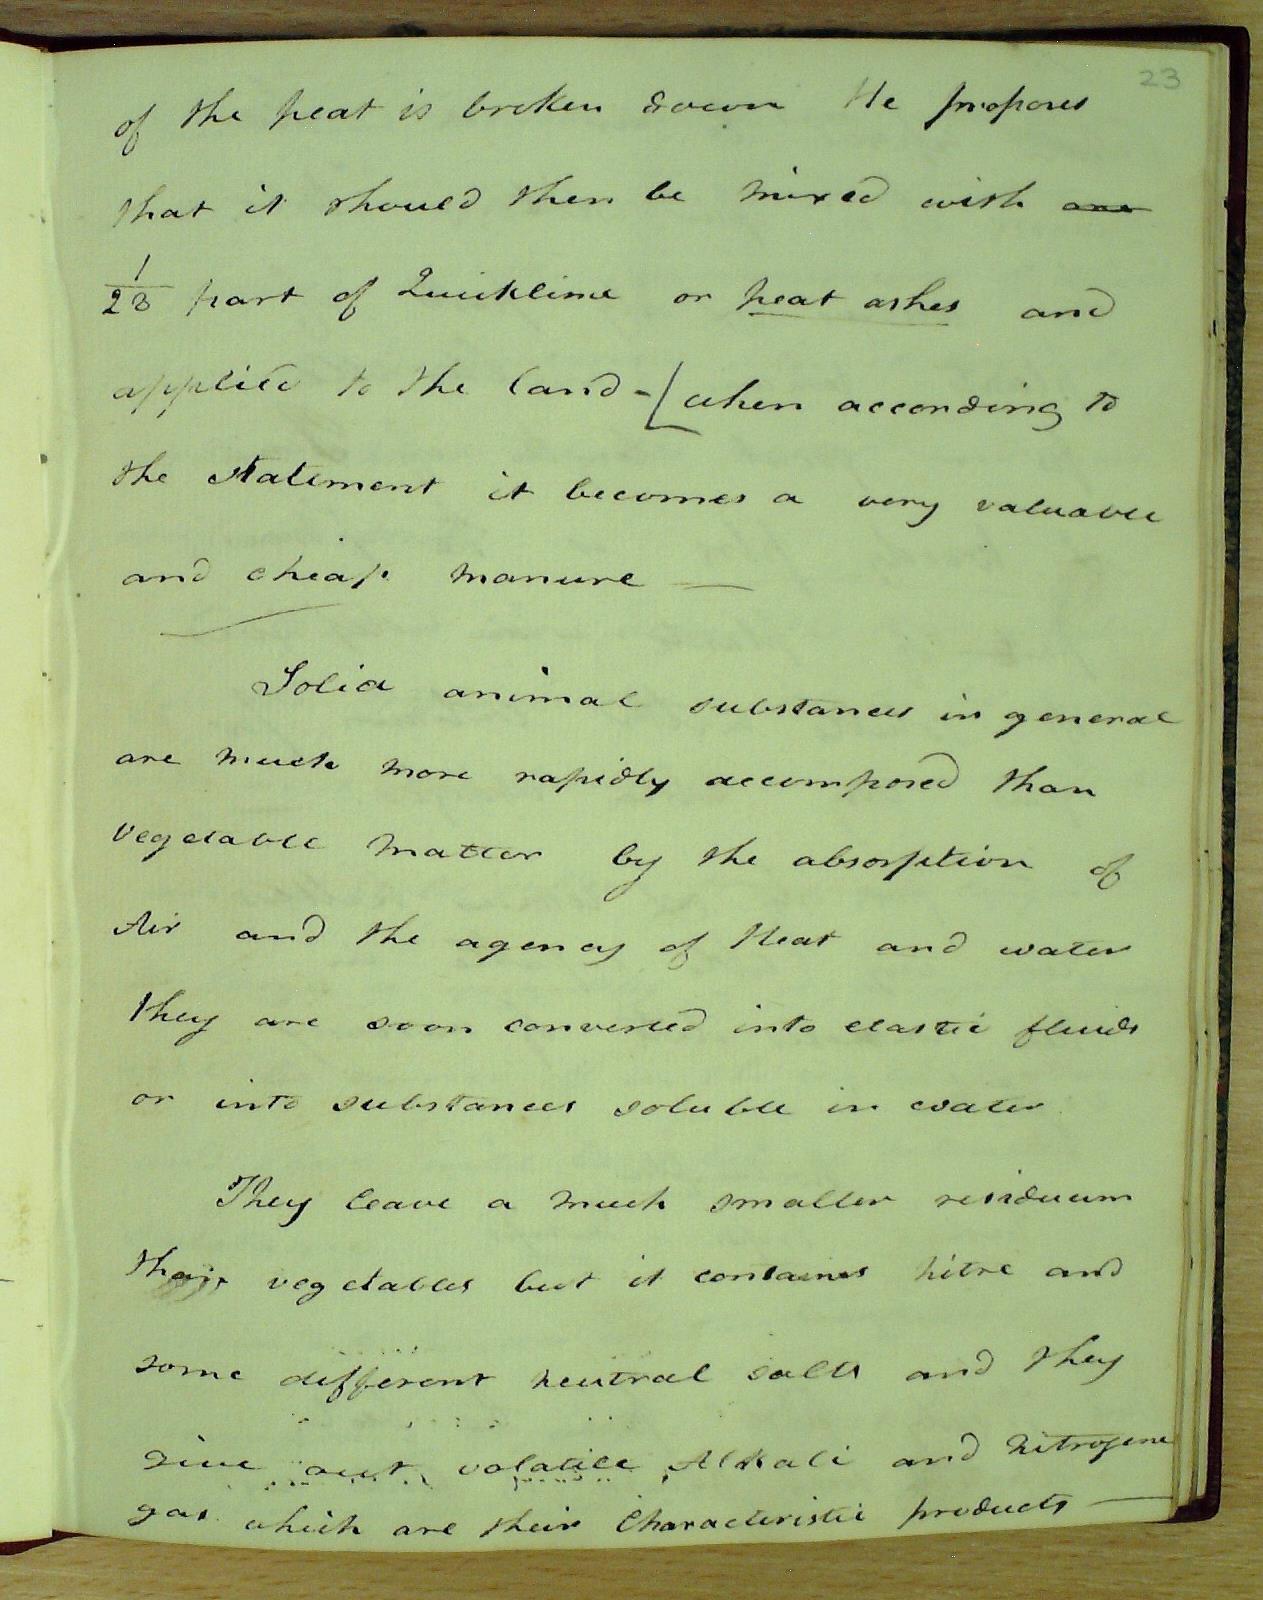 23
of the peat is broken down He proposes
that it should then be mixed with one
1/28 part of Quicklime or peat ashes and
applied to the land - [ when according to
the statement it becomes a very valuable
and cheap manure —
Solid animal substances in general
are much more rapidly decomposed than
vegetable matter by the absorption of
Air and the agency of Heat and water
they are soon converted into elastic fluids
or into substances soluble in water
They leave a much smaller residuum
than vegetables but it contains nitre and
some different neutral salts and they
give out volatile Alkali and nitrogene
gas which are their Characteristic products —